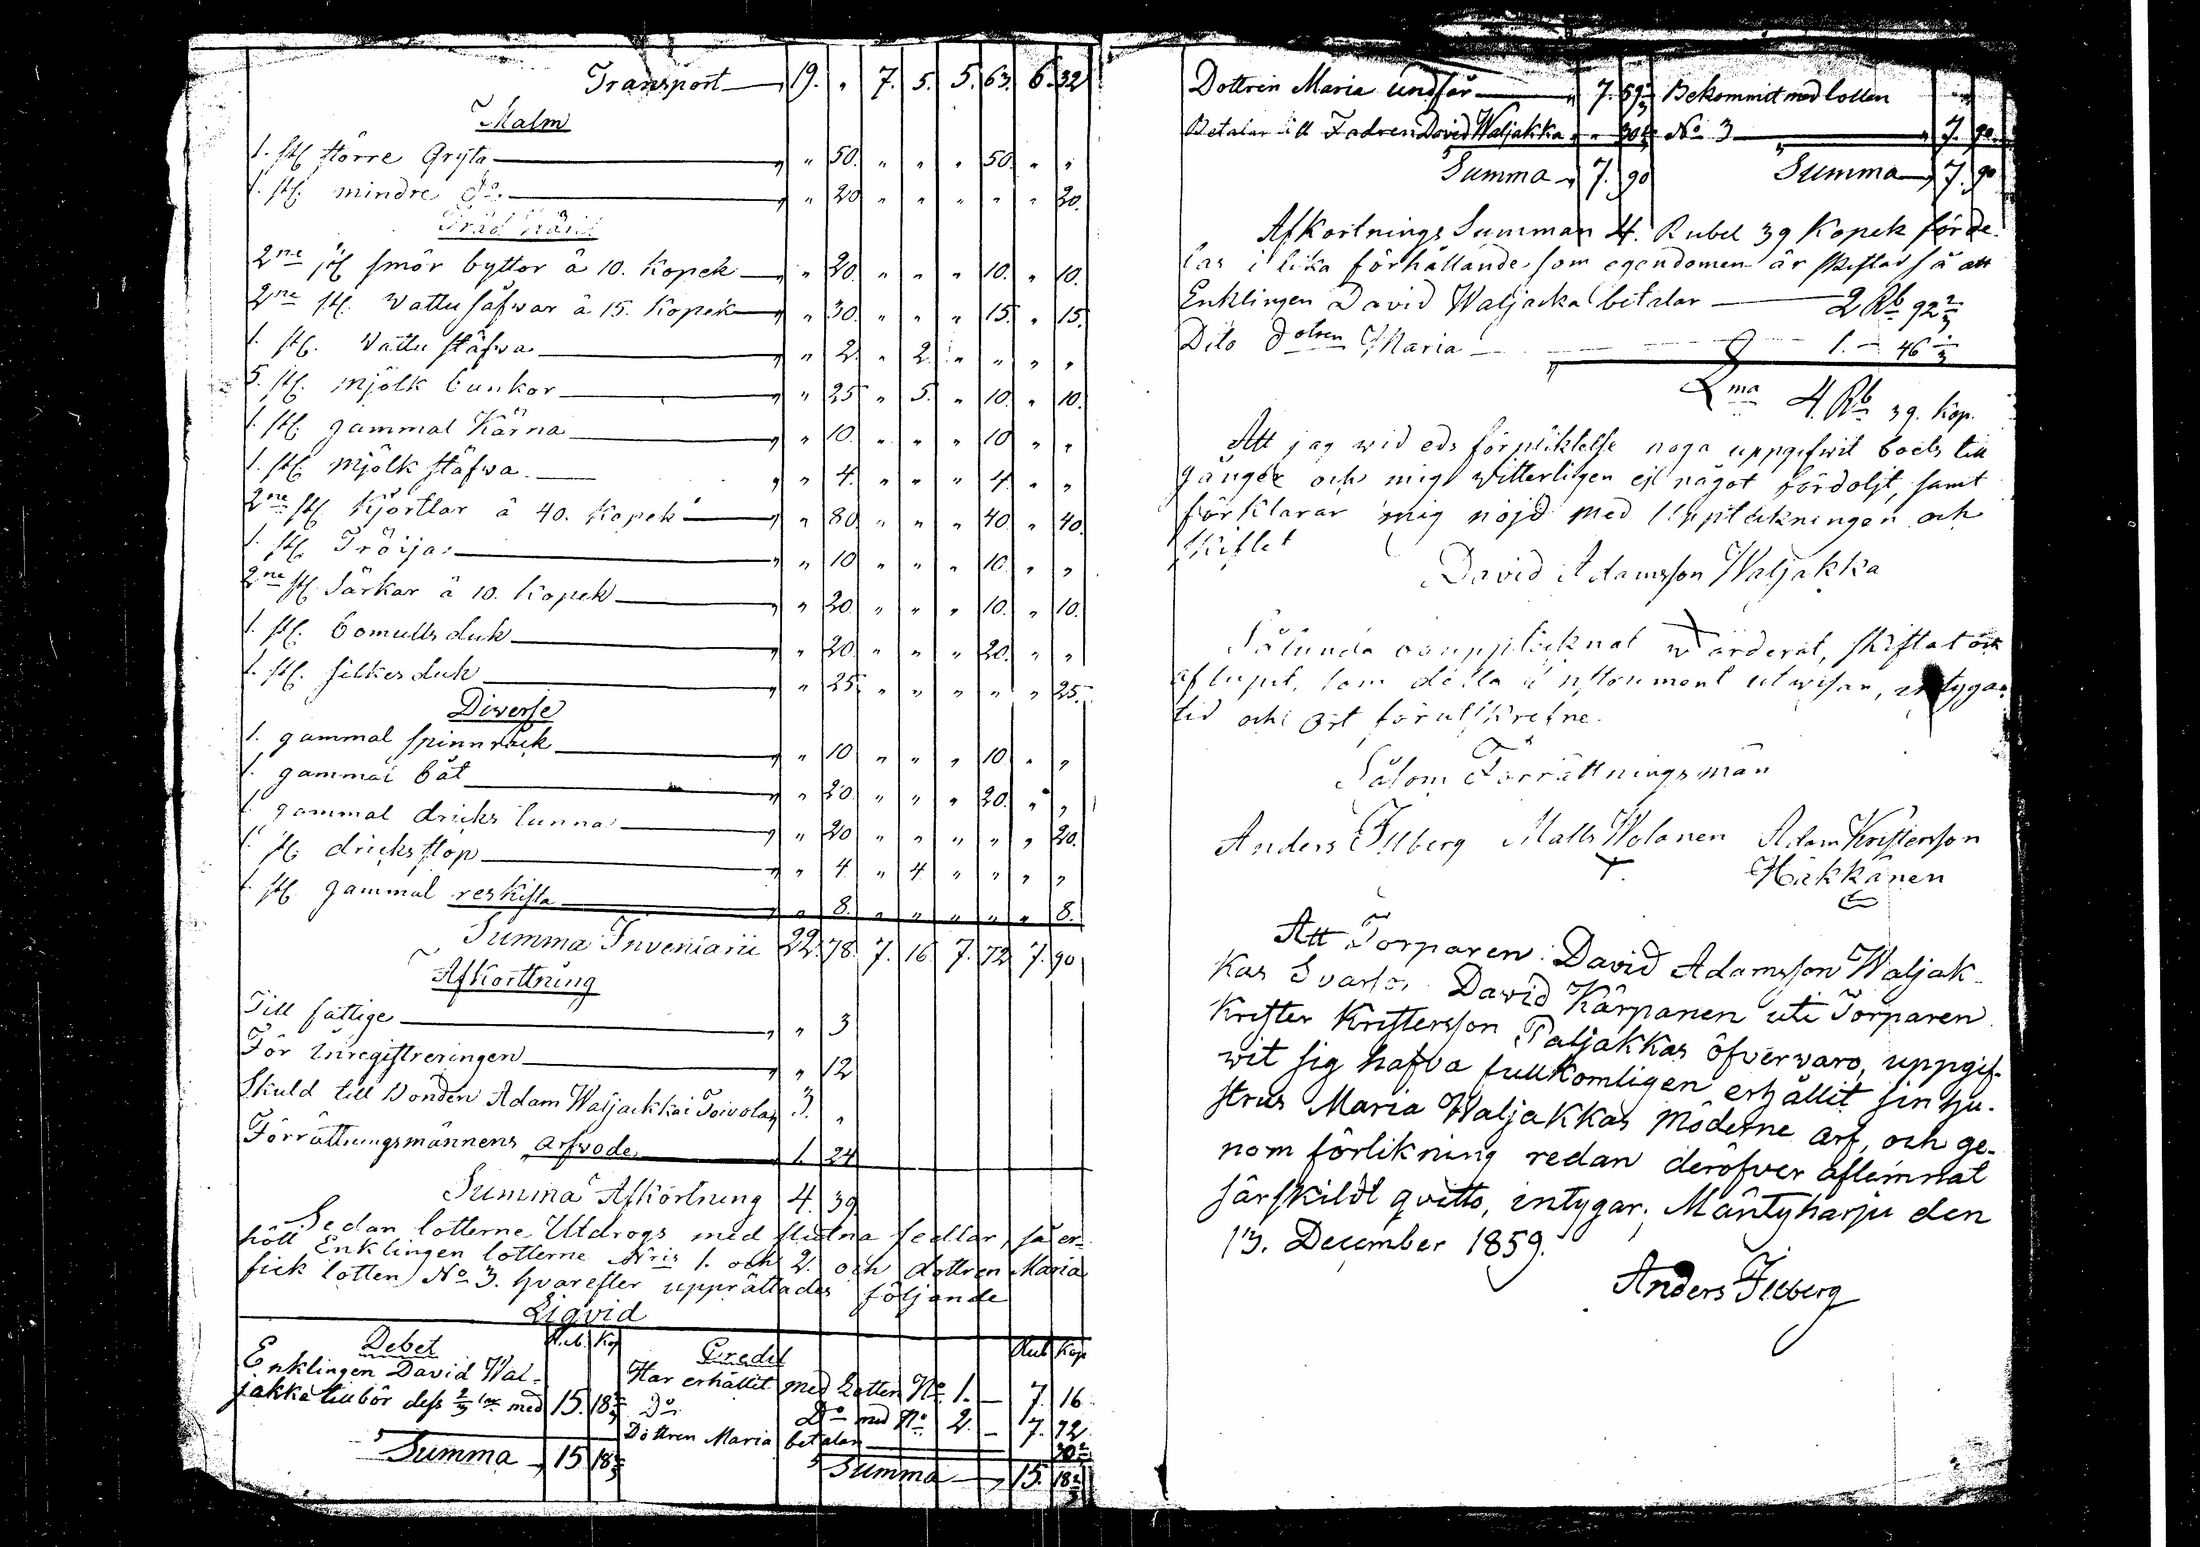 Transport 19. " 7. 5. 5. 63. 6. 32
Malm
1. st. större Gryta " 50. " " " 50. " "
1. st. mindre Do " 20 " " " " " 20.
2ne st smör byttor à 10. Kopek " 20. " " " 10. " 10.
2ne st. Vattu såfwar à 15. Kopek " 30. " " " 15. " 15.
1. st. Vattu stäfwa " 2. " 2. " " " "
5. st. mjölk bunkor " 25 " 5. " 10. " 10.
1. st. gammal Kärna " 10. " " " 10 " "
1. st. mjölk stäfwa " 4. " " " 4. " "
2ne st. Kjortlar à 40. Kopek " 80. " " " 40 " 40.
1. st. Tröija " 10 " " " 10. " "
2ne st. Särkar à 10. Kopek " 20. " " " 10. " 10.
1. st. bomulls duk " 20. " " " 20. " "
1. st. silkes duk " 25. " " " " " 25.
Diverse
1. gammal spinnråck " 10 " " " 10. " "
1. gammal båt " 20. " " " 20. " "
1. gammal dricks tunna " 20 " " " " " 20.
1. st. dricks stop " 4. " 4. " " " "
1. st. gammal reskista " 8. " " " " " 8.
Summa Inventarii 22. 78. 7. 16 7. 72 7. 90
Afkorttning
Till fattige " 3
För inregistreringen " 12
Skuld till Bonden Adam Waljackka i Toivola 3. "
Förrättningsmännens arfvode 1. 24
Summa Afkortning 4. 39
Sedan lotterne Utdrogs med slutna sedlar, så er-
höll Enklingen lotterne Nris 1. och 2. och dottren Maria
fick lotten No 3. hvarefter upprättades följande
Liqvid
Debet Rub. Kop Credit Rub Kop
Enklingen David Wal- Har erhållit med Lotten No 1. 7. 16
jakka tillbör dess 2/3 med 15. 18 2/3 Do Do med No 2. 7. 72
Dottren Maria betalar 30 2/3
Summa 15 18 2/3 Summa 15. 18 2/3
Dottren Maria undfår 7. 59 1/3 Bekommit med lotten
Betalar till Fadren David Waljakka " 30 2/3 No 3 7. 90.
Summa 7. 90 Summa 7. 90
Afkortnings Summan 4. Rubel 39 Kopek förde-
las i lika förhållande som egendomen är skiftad så att
Enklingen David Waljacka betalar 2 Rb 92 2/3
Dito dottren Maria 1. 46 1/3
Sma 4 Rb 39. Kop.
Att jag wid eds förpliktelse noga uppgifwit boets till
gångar och mig witterligen ej något fördoljt, samt
förklarar mig nöjd med Uppteckningen och
skiftet
David Adamsson Waljakka
Sålunda vara upptecknat wärderat, skiftat och
aflupit, som detta instrument utwisar, intygar
tid och ort förutskrefne.
Såsom Förrättningsmän
Anders Filberg Matts Wolanen Adam Kristersson
Häkkänen
Att Torparen David Adamsson Waljak-
kas Svärson David Kärpänen uti Torparen
Krister Kristersson Paljakkas öfvervaro, uppgif-
wit sig hafva fullkomligen erhållit sin hu-
strus Maria Waljakkas Möderne arf, och ge-
nom förlikning redan deröfver aflemnat
särskildt qvitto, intygar; Mäntyharju den
13. December 1859.
Anders Filberg